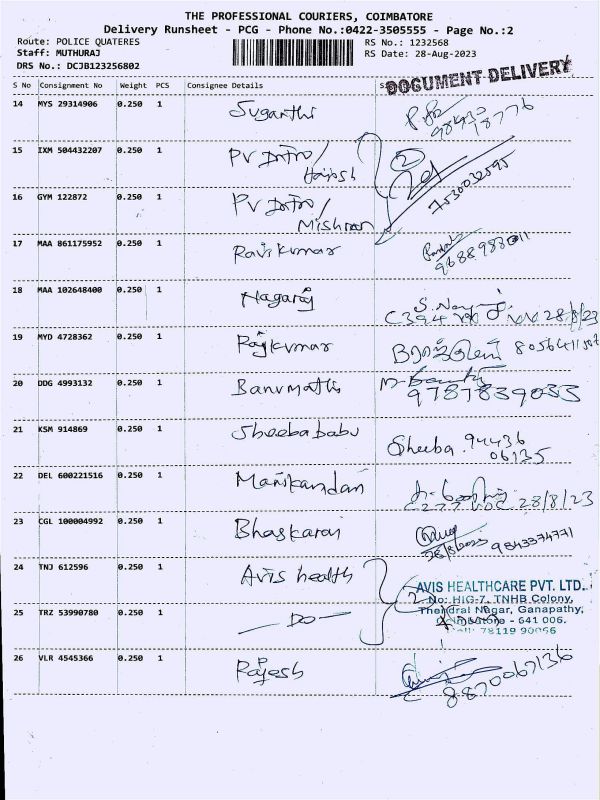 THE PROFESSIONAL COURIERS, COIMBATORE
Delivery Runsheet - PCG - Phone No.:0422-3505555 - Page No.:2
Route: POLICE QUATERES RS No.: 1232568
Staff: MUTHURAJ RS Date: 28-Aug-2023
DRS No.: DCJB123256802
DOCUMENT DELIVERY
S No Consignment No Weight PCS Consignee Details
14 MYS 29314906 0.250 1 Suganthi
15 IXM 504432207 0.250 1 PV Intro/
2
7530032595
16 GYM 122872 0.250 1 PV Intro/
17 MAA 861175952 0.250 1 Ravikumar
18 MAA 102648400 0.250 1 Nagaraj
28/8/23
19 MYD 4728362 0.250 1 Rajkumar
20 DDG 4993132 0.250 1 Banumathi
9787839033
21 KSM 914869 0.250 1 Sheebababu
Sheeba. 94436
06135
22 DEL 600221516 0.250 1 Manikandan
28/8/23
23 CGL 100004992 0.250 1 Bhaskaran
28/8/2023 9843374771
24 TNJ 612596 0.250 1 Avis health
2
AVIS HEALTHCARE PVT. LTD.
No: HIG-7, TNHB Colony,
Thendral Nagar, Ganapathy,
Coimbatore - 641 006.
Cell: 78119 90066
25 TRZ 53990780 0.250 1 — Do —
26 VLR 4545366 0.250 1 P Rajesh
8870067136